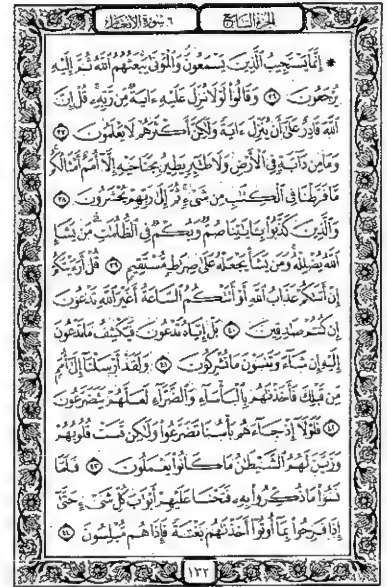 الجزء السابع
٦ سورة الأنعام
* إِنَّمَا يَسْتَجِيبُ الَّذِينَ يَسْمَعُونَ وَالْمَوْتَى يَبْعَثُهُمُ اللَّهُ ثُمَّ إِلَيْهِ
يُرْجَعُونَ ٣٦ وَقَالُوا لَوْلَا نُزِّلَ عَلَيْهِ ءَايَةٌ مِّن رَّبِّهِ قُلْ إِنَّ
اللَّهَ قَادِرٌ عَلَى أَن يُنَزِّلَ ءَايَةً وَلَٰكِنَّ أَكْثَرَهُمْ لَا يَعْلَمُونَ ٣٧
وَمَا مِن دَابَّةٍ فِي الْأَرْضِ وَلَا طَائِرٍ يَطِيرُ بِجَنَاحَيْهِ إِلَّا أُمَمٌ أَمْثَالُكُم
مَّا فَرَّطْنَا فِي الْكِتَٰبِ مِن شَيْءٍ ثُمَّ إِلَى رَبِّهِمْ يُحْشَرُونَ ٣٨
وَالَّذِينَ كَذَّبُوا بِـَٔايَٰتِنَا صُمٌّ وَبُكْمٌ فِي الظُّلُمَٰتِ مَن يَشَإِ
اللَّهُ يُضْلِلْهُ وَمَن يَشَأْ يَجْعَلْهُ عَلَى صِرَٰطٍ مُّسْتَقِيمٍ ٣٩ قُلْ أَرَءَيْتَكُمْ
إِنْ أَتَىٰكُمْ عَذَابُ اللَّهِ أَوْ أَتَتْكُمُ السَّاعَةُ أَغَيْرَ اللَّهِ تَدْعُونَ
إِن كُنتُمْ صَٰدِقِينَ ٤٠ بَلْ إِيَّاهُ تَدْعُونَ فَيَكْشِفُ مَا تَدْعُونَ
إِلَيْهِ إِن شَاءَ وَتَنسَوْنَ مَا تُشْرِكُونَ ٤١ وَلَقَدْ أَرْسَلْنَا إِلَى أُمَمٍ
مِّن قَبْلِكَ فَأَخَذْنَٰهُم بِالْبَأْسَاءِ وَالضَّرَّاءِ لَعَلَّهُمْ يَتَضَرَّعُونَ
٤٢ فَلَوْلَا إِذْ جَاءَهُم بَأْسُنَا تَضَرَّعُوا وَلَٰكِن قَسَتْ قُلُوبُهُمْ
وَزَيَّنَ لَهُمُ الشَّيْطَٰنُ مَا كَانُوا يَعْمَلُونَ ٤٣ فَلَمَّا
نَسُوا مَا ذُكِّرُوا بِهِ فَتَحْنَا عَلَيْهِمْ أَبْوَٰبَ كُلِّ شَيْءٍ حَتَّى
إِذَا فَرِحُوا بِمَا أُوتُوا أَخَذْنَٰهُم بَغْتَةً فَإِذَا هُم مُّبْلِسُونَ ٤٤
١٣٢